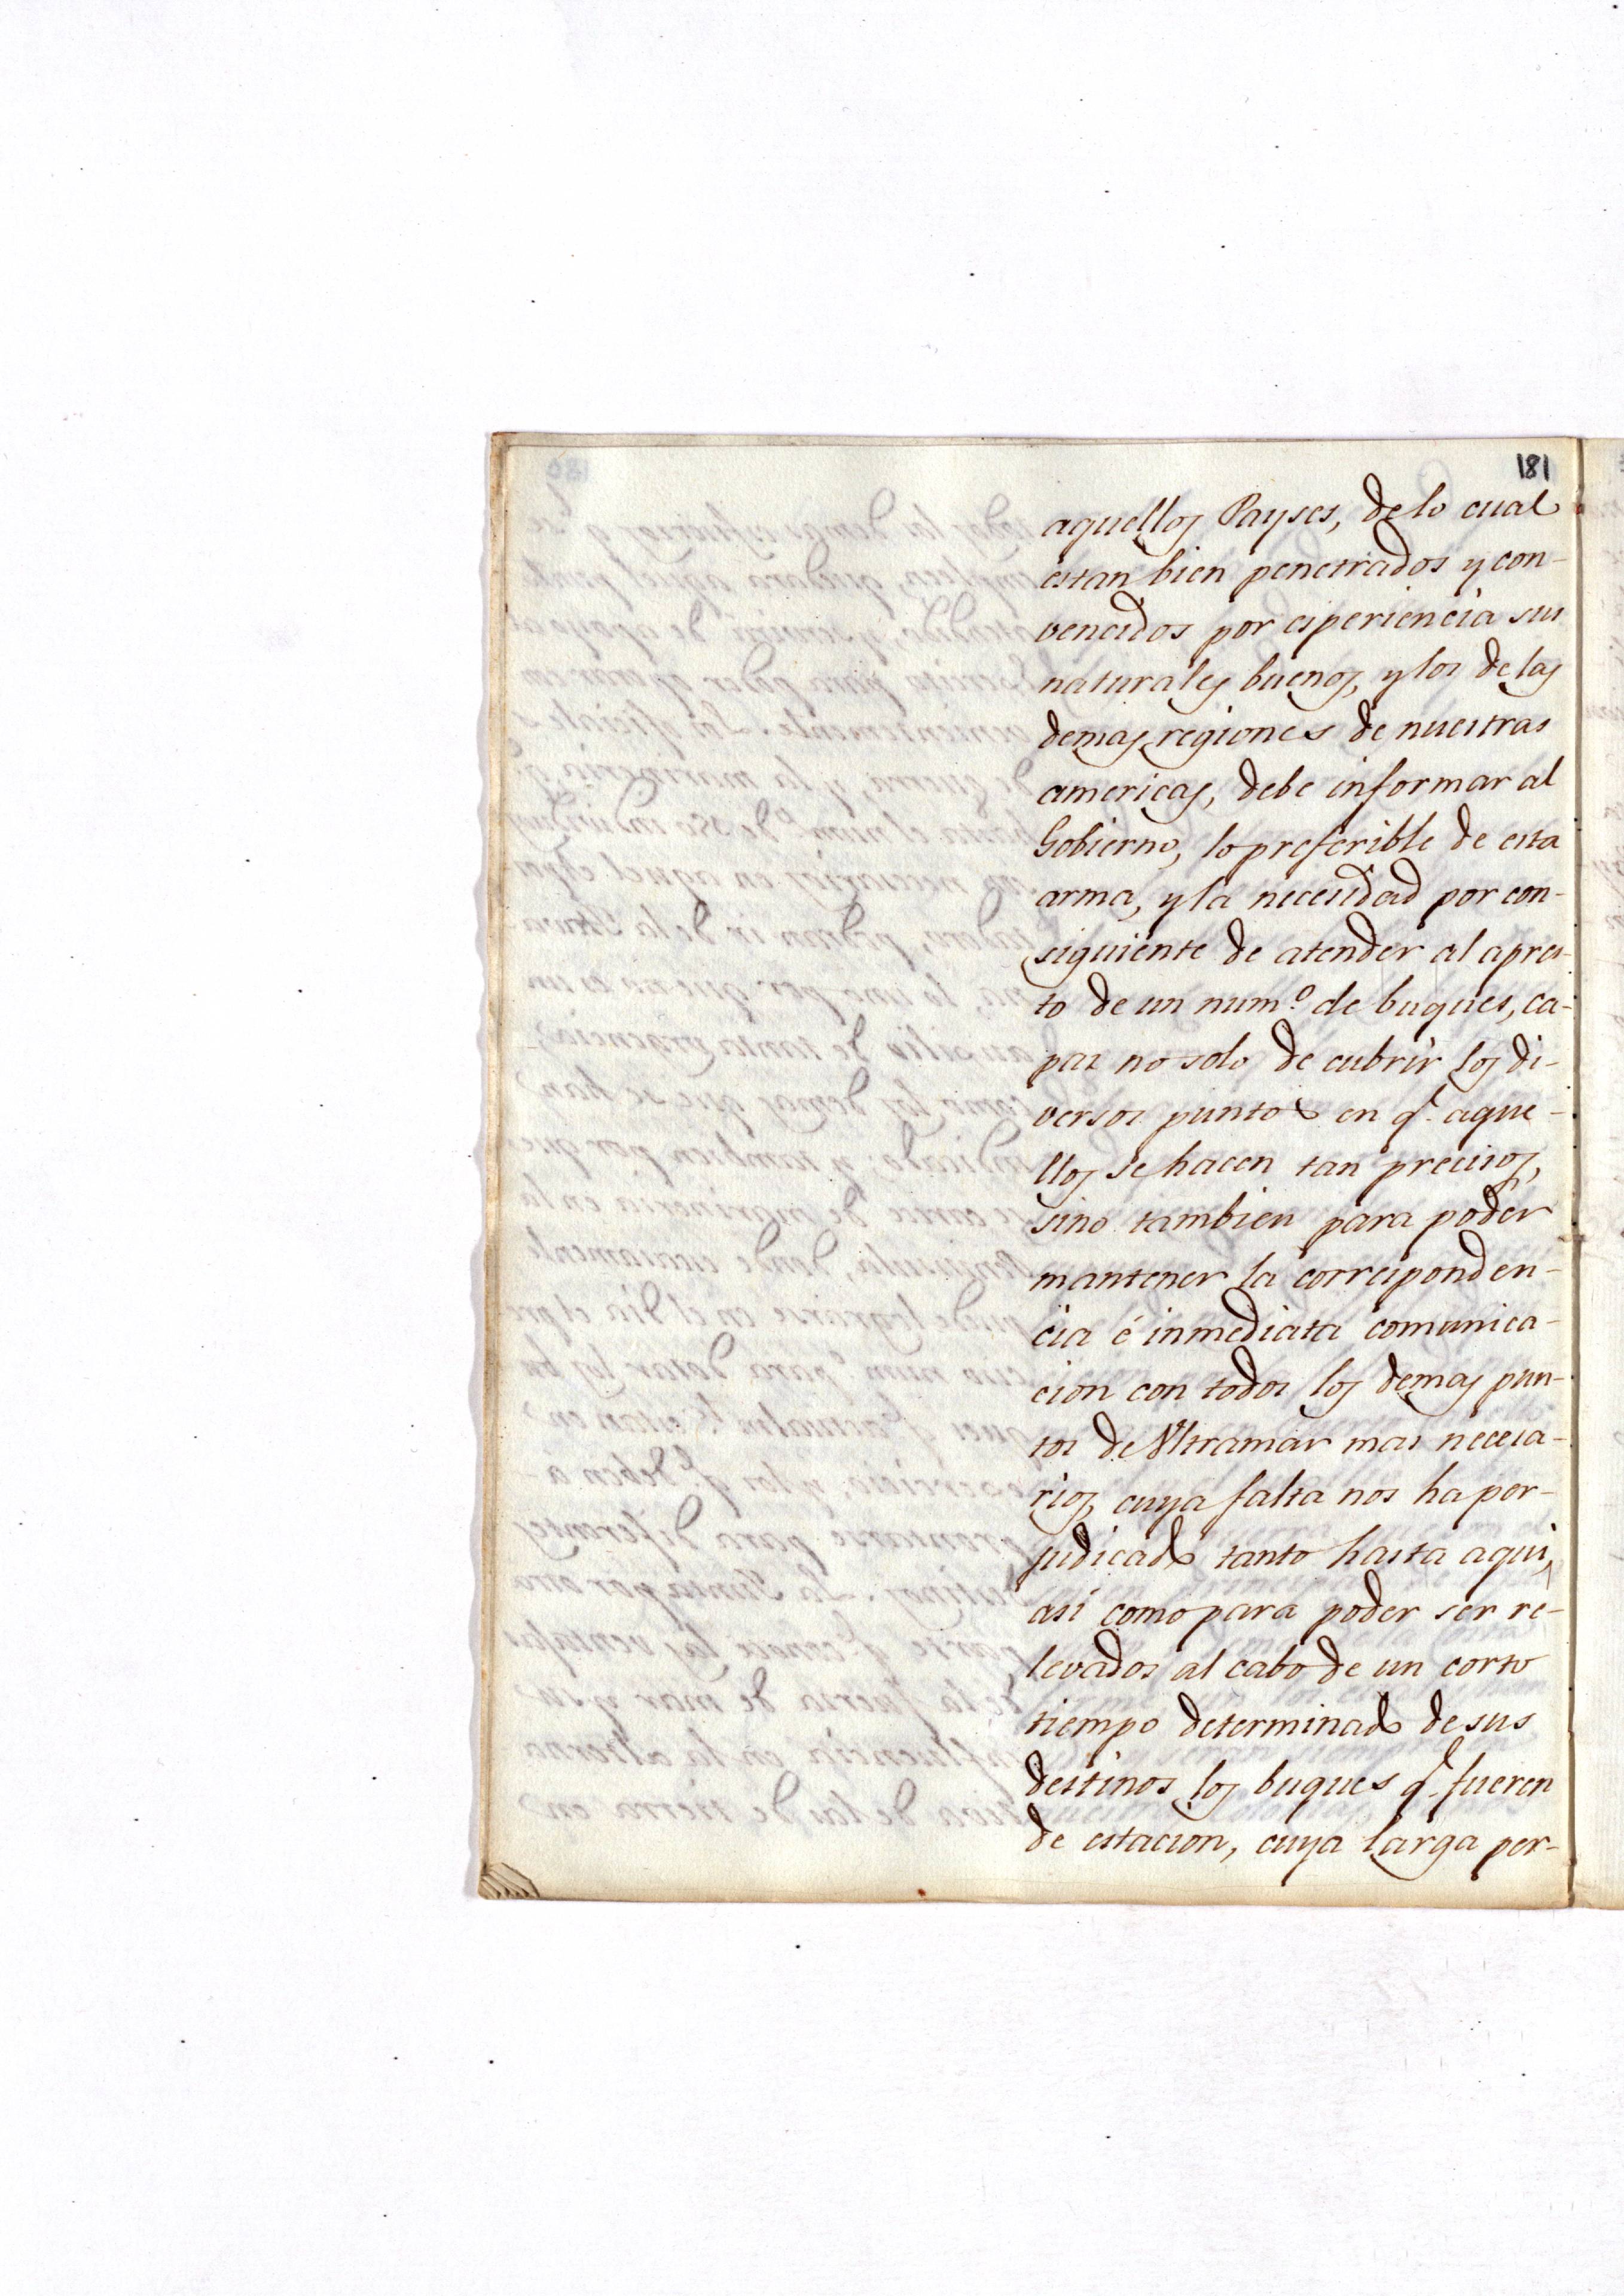 181
aquellos Payses, de lo cual
estan bien penetrados y con-
vencidos por esperiencia sus
naturales buenos, y los de las
demas regiones de nuestras
americas, debe informar al
Gobierno, lo preferible de esta
arma, y la necesidad por con-
siguiente de atender al apres-
to de un num.º de buques, ca-
paz no solo de cubrir los di-
versos puntos en q.e aque-
llos se hacen tan precisos,
sino tambien para poder
mantener la corresponden-
cia é inmediata comunica-
cion con todos los demas pun-
tos de Vltramar mas necesa-
rios, cuya falta nos ha per-
judicado tanto hasta aqui,
asi como para poder ser re-
levados al cabo de un corto
tiempo determinado de sus
destinos los buques q.e fueren
de estacion, cuya larga per-